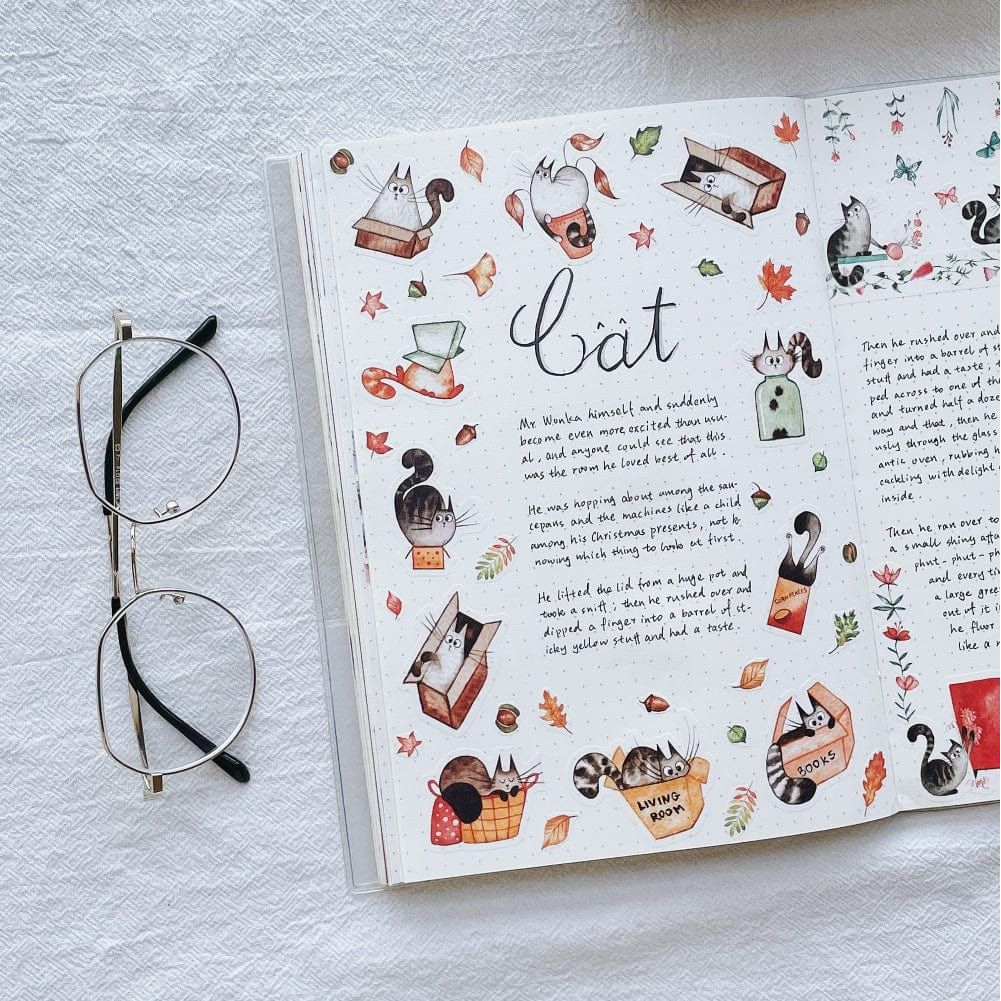 Cât
Mr Wonka himself and suddenly
become even more excited than usu-
al, and anyone could see that this
was the room he loved best of all.
He was hopping about among the sau-
cepans and the machines like a child
among his Christmas presents, not k-
nowing which thing to look at first.
He lifted the lid from a huge pot and
took a sniff; then he rushed over and
dipped a finger into a barrel of st-
icky yellow stuff and had a taste.
CORN FLAKES
BOOKS
LIVING
ROOM
Then he rushed over and
finger into a barrel of st
stuff and had a taste; t
ped across to one of th
and turned half a doze
way and that, then he
usly through the glass
antic oven, rubbing h
cackling with delight
inside.
Then he ran over to
a small shiny affa
phut-phut-ph
and every tim
a large gree
out of it i
he floor
like a m